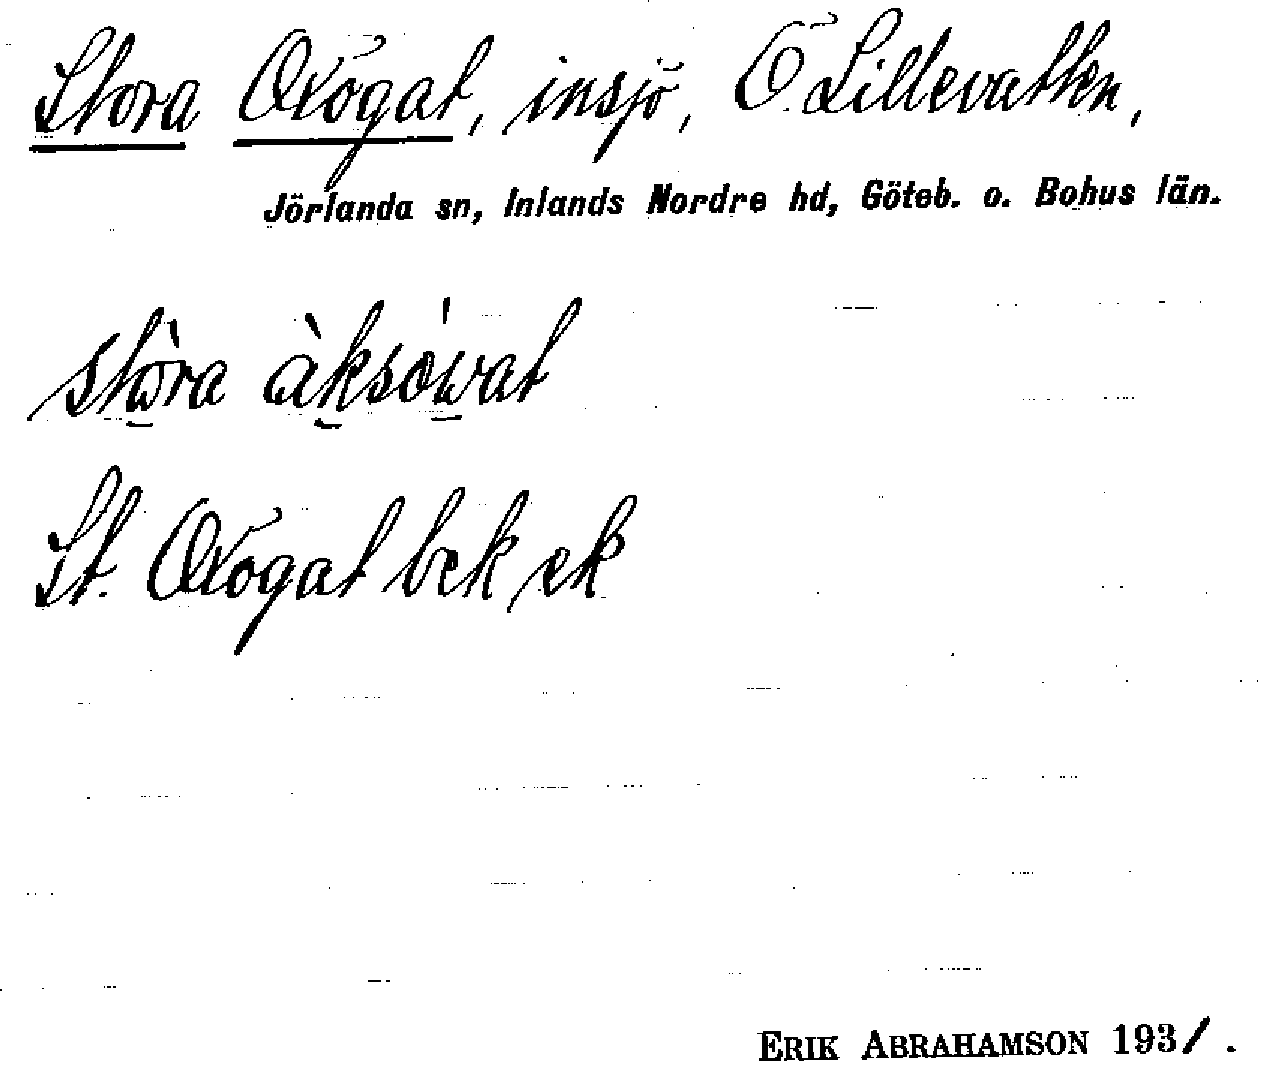 Stora Oxögat, insjö, Ö. Lillevatten,
Jörlanda sn, Inlands Nordre hd, Göteb. o. Bohus län.
stòra àksówat
St. Oxögat bek ek
ERIK ABRAHAMSON 1931.